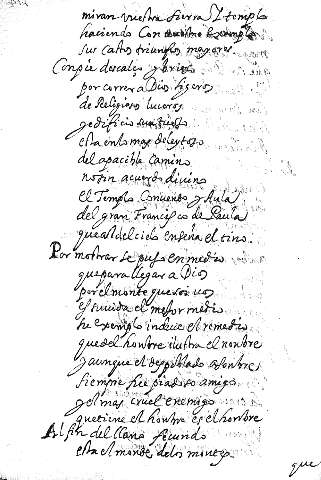 miran vuestra sierra y templo
haciendo con
sus castos triunfos mayores.
Con pie descalço y brios
por correr a Dios ligeros
de Religiosos luceros
y edificio
esta en lo mas deleytoso
del apacible camino
no sin acuerdo divino
el Templo Convento y Aula
del gran Francisco de Paula
que al del cielo enseña el tino.
Por mostrar se puso en medio
que para llegar a Dios
por el monte que
es su vida el mejor medio
su exemplo induce el remedio
que del hombre ilustra el nombre
y aunque el despoblado asombre
siempre fue piadoso amigo
y el mas cruel enemigo
que tiene el hombre es el hombre
Al fin del llano fecundo
esta el monte de los
que